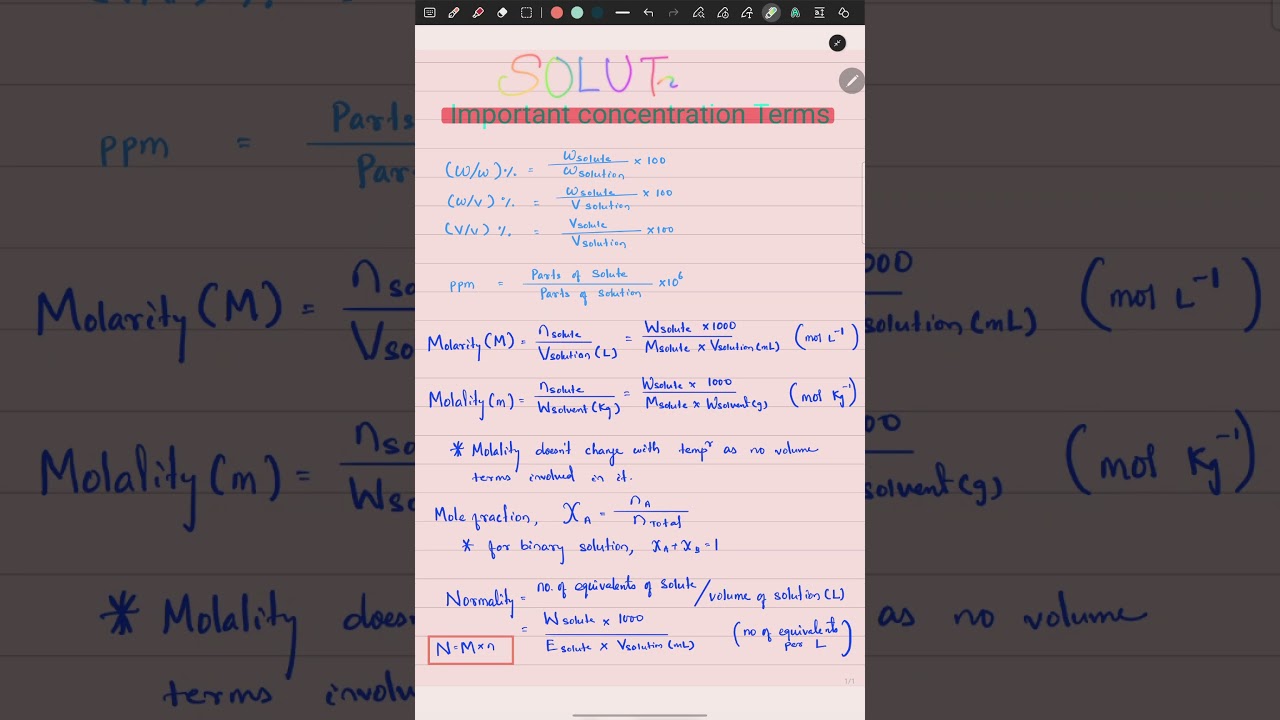 SOLUT
Important concentration Terms
(W/w) % = Wsolute / Wsolution × 100
(W/V) % = Wsolute / V solution × 100
(V/V) % = Vsolute / Vsolution × 100
ppm = Parts of Solute / Parts of solution × 10⁶
Molarity (M) = nsolute / Vsolution (L) = Wsolute × 1000 / Msolute × Vsolution (mL) (mol L⁻¹)
Molality (m) = nsolute / Wsolvent (Kg) = Wsolute × 1000 / Msolute × Wsolvent (g) (mol Kg⁻¹)
* Molality doesn't change with tempʳ as no volume
terms involved in it.
Mole fraction, X A = n A / n Total
* for binary solution, x A + x B = 1
Normality = no. of equivalents of solute / volume of solution (L)
= W solute × 1000 / E solute × Vsolution (mL) (no of equivalents per L)
N = M × n
1/1